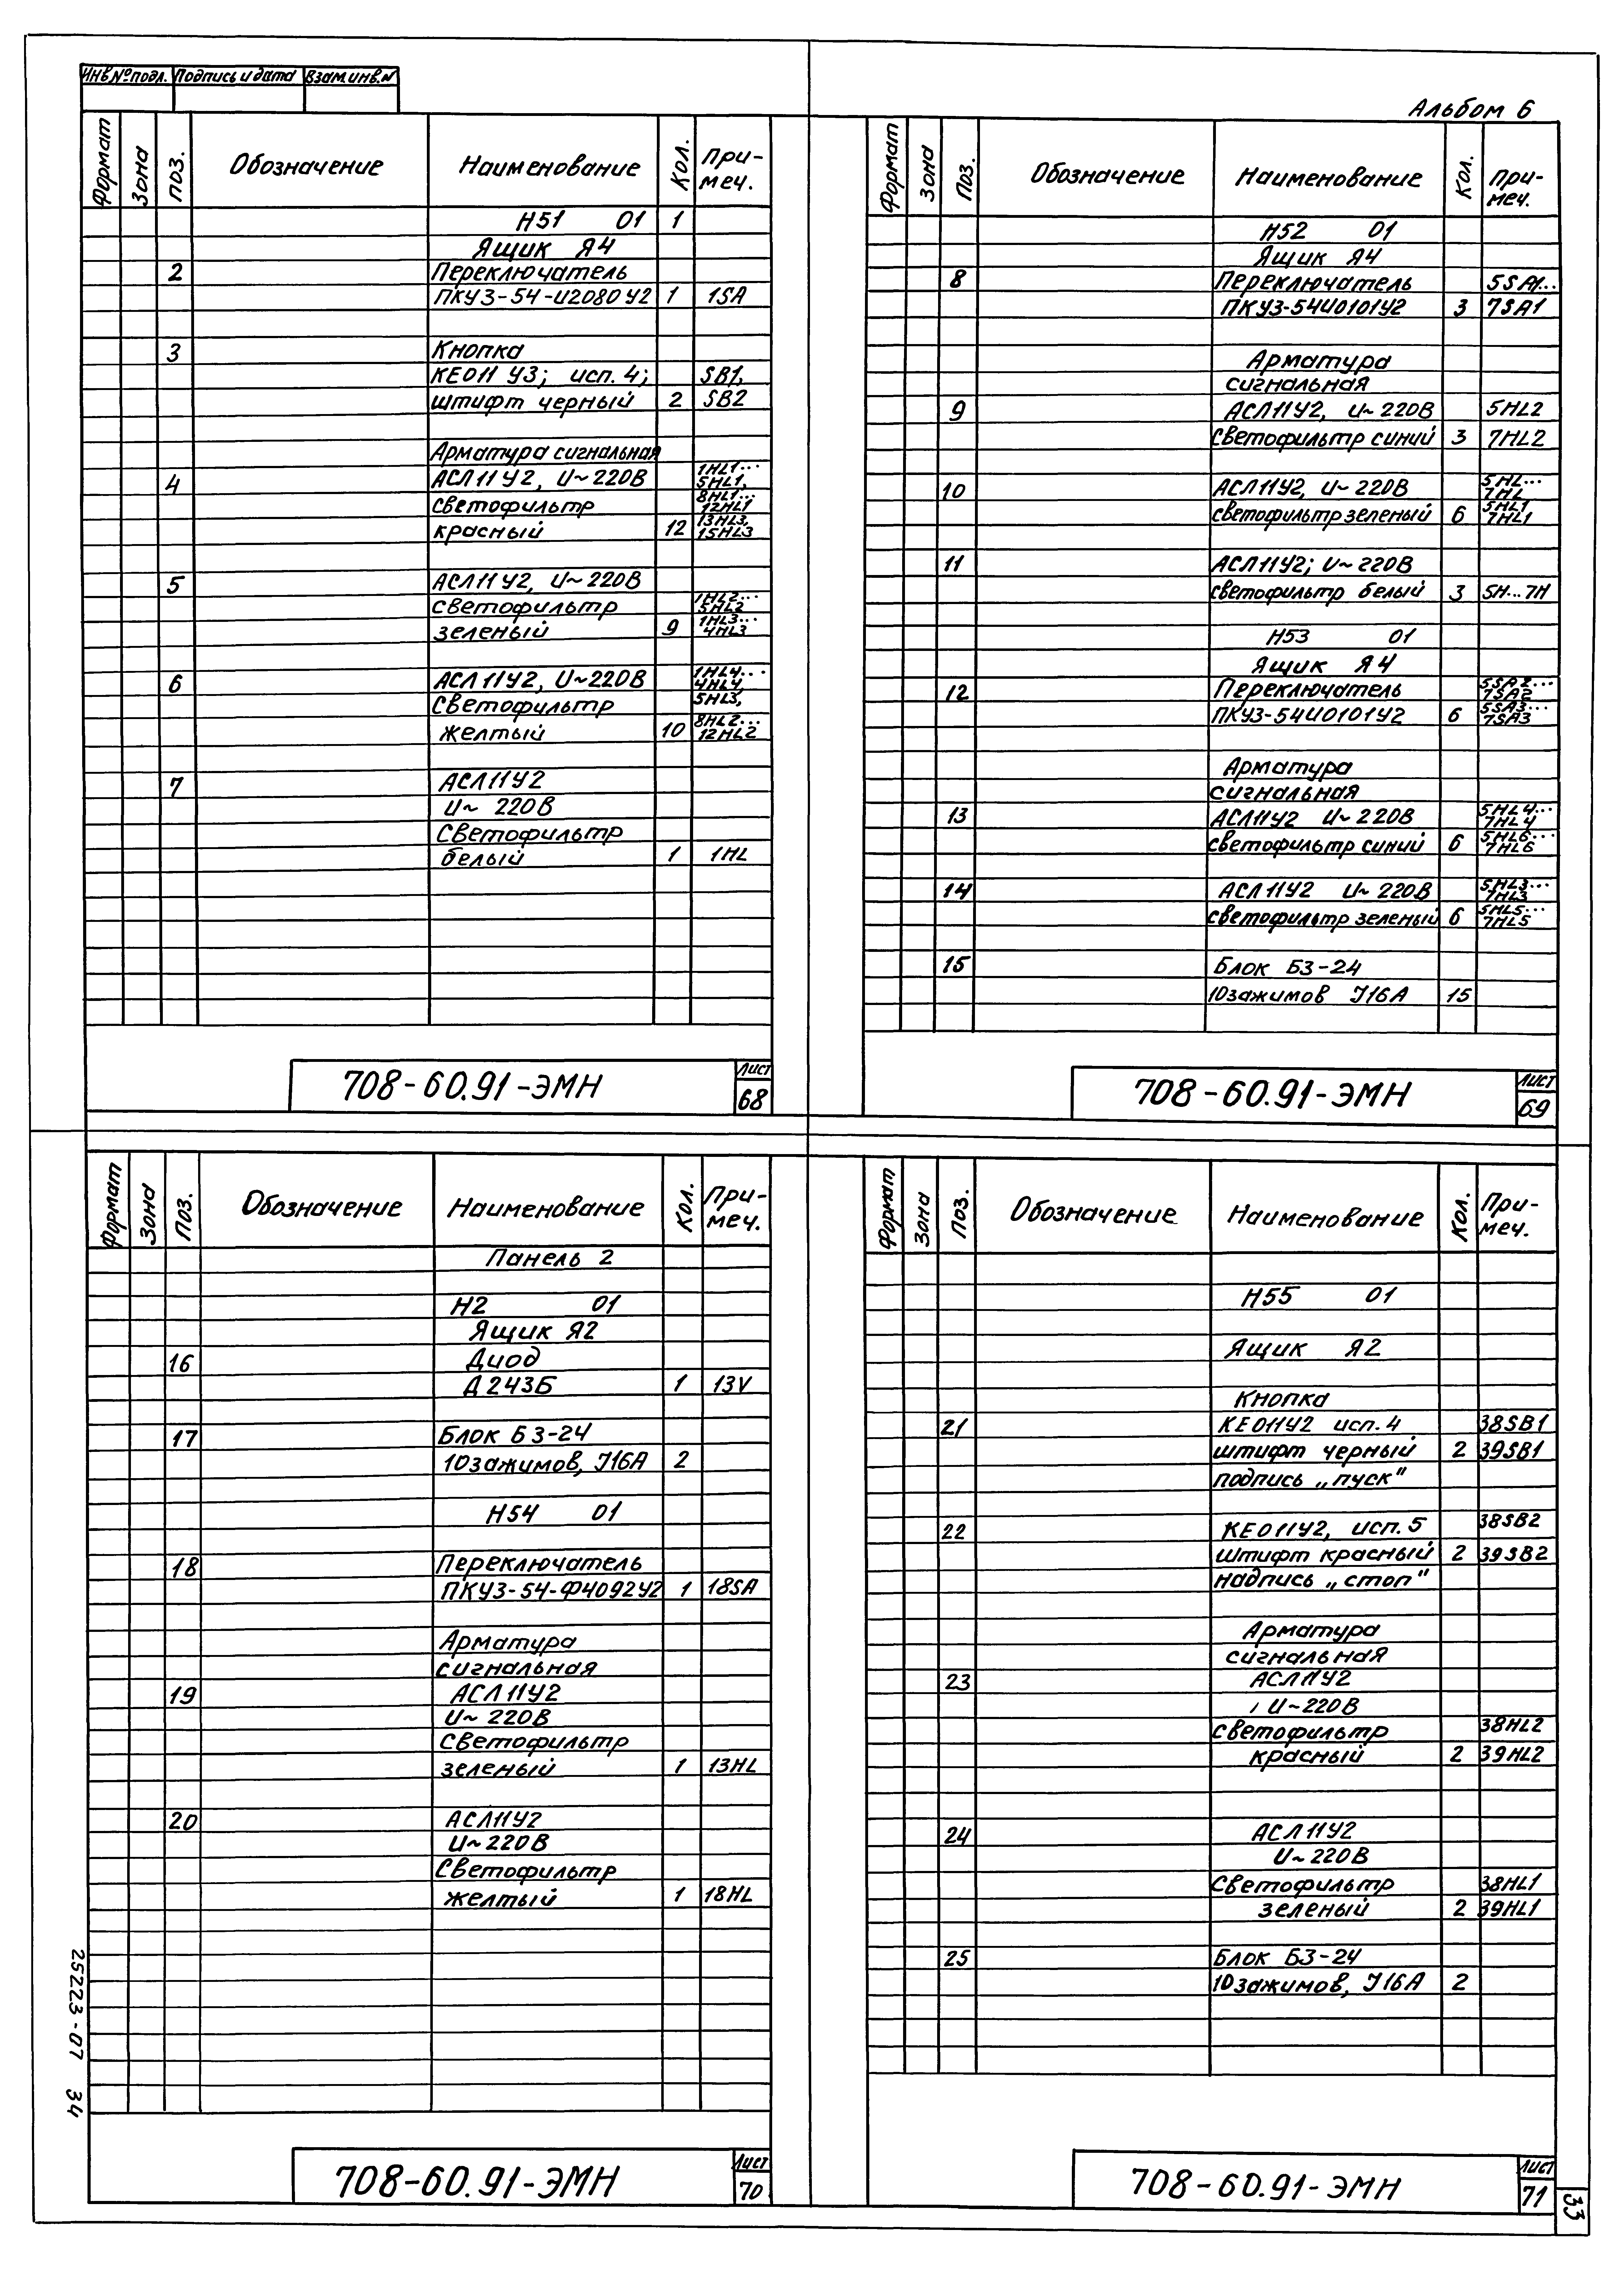 Инв№подл. Подпись и дата Взам.инв.№
Альбом 6
Формат Зона Поз. Обозначение Наименование Кол. При-
меч.
Н51 01 1
Ящик Я4
2 Переключатель
ПКУ3-54-И2080У2 1 1SA
3 Кнопка
КЕ011 У3; исп. 4; SB1,
штифт черный 2 SB2
Арматура сигнальная
4 АСЛ11У2, U~220В 1HL1... 5HL1,
светофильтр 8HL1... 12HL1
красный 12 13HL3, 15HL3
5 АСЛ11У2, U~220В
светофильтр 1HL2... 5HL2
зеленый 9 1HL3... 4HL3
6 АСЛ11У2, U~220В 1HL4... 4HL4,
Светофильтр 5HL3,
желтый 10 8HL2... 12HL2
7 АСЛ11У2
U~ 220В
Светофильтр
белый 1 1HL
708-60.91-ЭМН Лист
68
Формат Зона Поз. Обозначение Наименование Кол. При-
меч.
Н52 01
Ящик Я4
8 Переключатель 5SA1...
ПКУ3-54И0101У2 3 7SA1
Арматура
сигнальная
9 АСЛ11У2, U~220В 5HL2
светофильтр синий 3 7HL2
10 АСЛ11У2, U~220В 5HL... 7HL
светофильтр зеленый 6 5HL1 7HL1
11 АСЛ11У2; U~220В
светофильтр белый 3 5H...7H
Н53 01
Ящик Я4
12 Переключатель 5SA2... 7SA2
ПКУ3-54И0101У2 6 5SA3... 7SA3
Арматура
сигнальная
13 АСЛ11У2 U~220В 5HL4... 7HL4
светофильтр синий 6 5HL6... 7HL6
14 АСЛ11У2 U~220В 5HL3... 7HL3
светофильтр зеленый 6 5HL5... 7HL5
15 Блок Б3-24
10зажимов J16А 15
708-60.91-ЭМН Лист
69
Формат Зона Поз. Обозначение Наименование Кол. При-
меч.
Панель 2
Н2 01
Ящик Я2
16 Диод
Д243Б 1 13V
17 Блок Б3-24
10зажимов, J16А 2
Н54 01
18 Переключатель
ПКУ3-54-Ф4092У2 1 18SA
Арматура
сигнальная
19 АСЛ11У2
U~ 220В
Светофильтр
зеленый 1 13HL
20 АСЛ11У2
U~220В
Светофильтр
желтый 1 18HL
708-60.91-ЭМН Лист
70
Формат Зона Поз. Обозначение Наименование Кол. При-
меч.
Н55 01
Ящик Я2
Кнопка
21 КЕ011У2 исп. 4 38SB1
штифт черный 2 39SB1
подпись „пуск"
22 КЕ011У2, исп. 5 38SB2
Штифт красный 2 39SB2
надпись „стоп"
Арматура
сигнальная
23 АСЛ11У2
U~220В
светофильтр 38HL2
красный 2 39HL2
24 АСЛ11У2
U~220В
Светофильтр 38HL1
зеленый 2 39HL1
25 Блок Б3-24
10зажимов, J16А 2
708-60.91-ЭМН Лист
71
33
25223-07 34